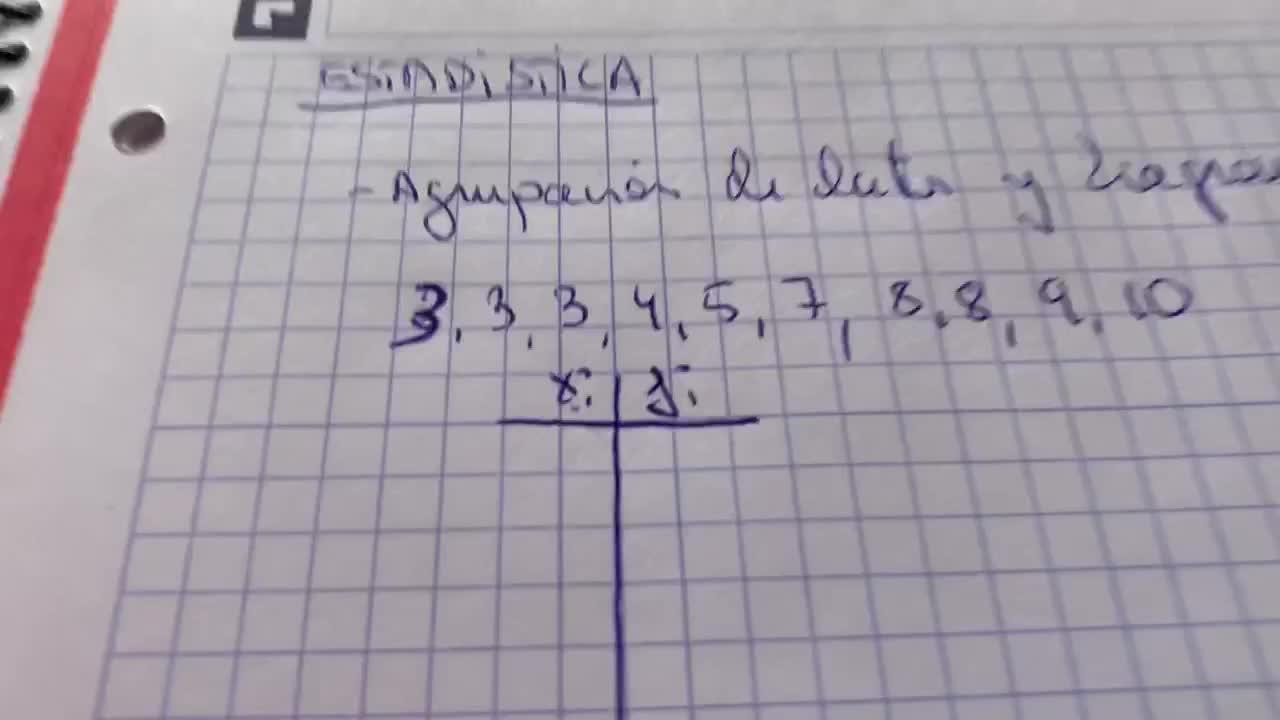 ESTADISTICA
- Agrupación de datos y
3, 3, 3, 4, 5, 7, 8, 8, 9, 10
xi